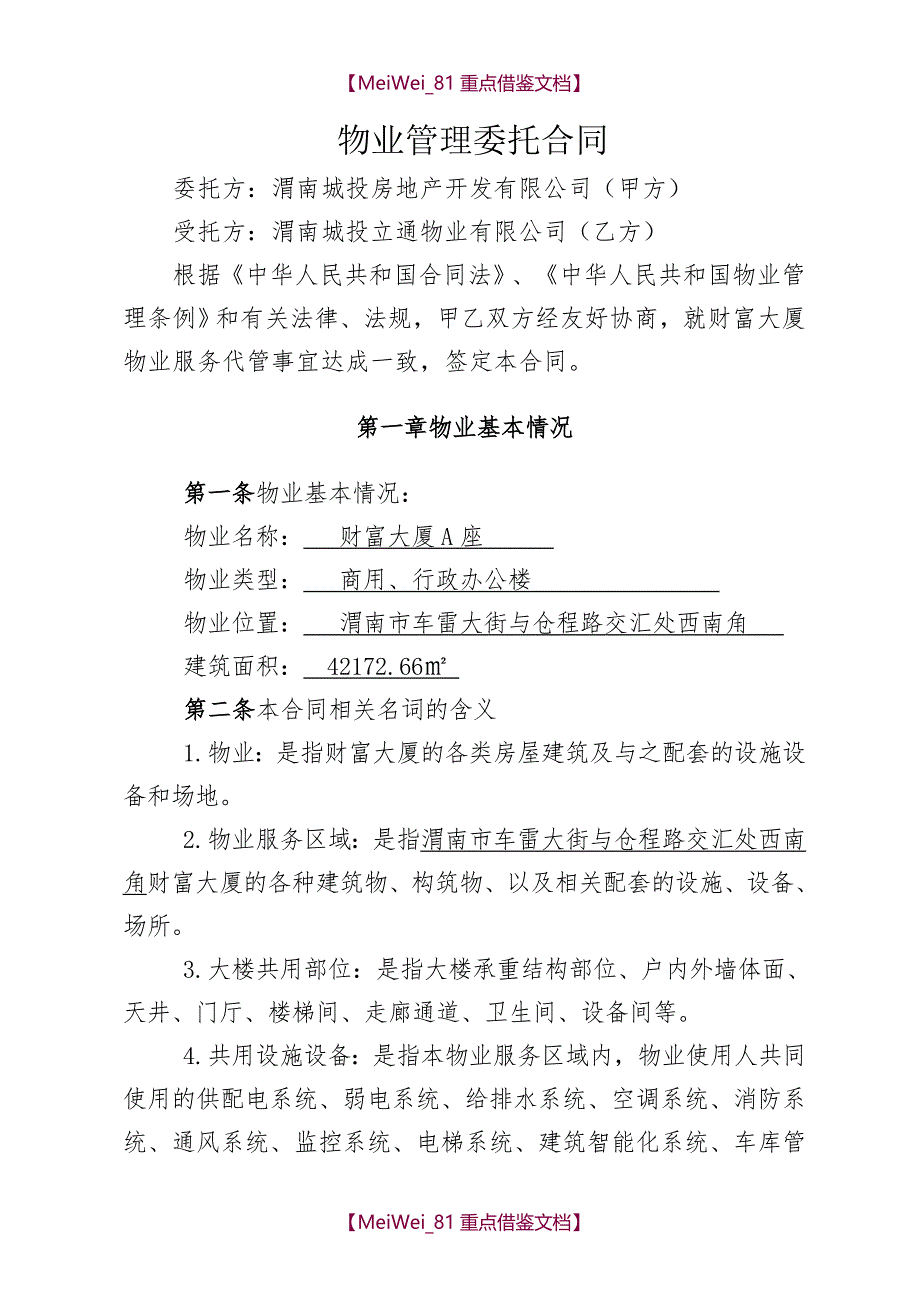 【MeiWei_81重点借鉴文档】
物业管理委托合同
委托方：渭南城投房地产开发有限公司（甲方）
受托方：渭南城投立通物业有限公司（乙方）
根据《中华人民共和国合同法》、《中华人民共和国物业管
理条例》和有关法律、法规，甲乙双方经友好协商，就财富大厦
物业服务代管事宜达成一致，签定本合同。
第一章物业基本情况
第一条物业基本情况：
物业名称： 财富大厦A座
物业类型： 商用、行政办公楼
物业位置： 渭南市车雷大街与仓程路交汇处西南角
建筑面积： 42172.66㎡
第二条本合同相关名词的含义
1.物业：是指财富大厦的各类房屋建筑及与之配套的设施设
备和场地。
2.物业服务区域：是指渭南市车雷大街与仓程路交汇处西南
角财富大厦的各种建筑物、构筑物、以及相关配套的设施、设备、
场所。
3.大楼共用部位：是指大楼承重结构部位、户内外墙体面、
天井、门厅、楼梯间、走廊通道、卫生间、设备间等。
4.共用设施设备：是指本物业服务区域内，物业使用人共同
使用的供配电系统、弱电系统、给排水系统、空调系统、消防系
统、通风系统、监控系统、电梯系统、建筑智能化系统、车库管
【MeiWei_81重点借鉴文档】